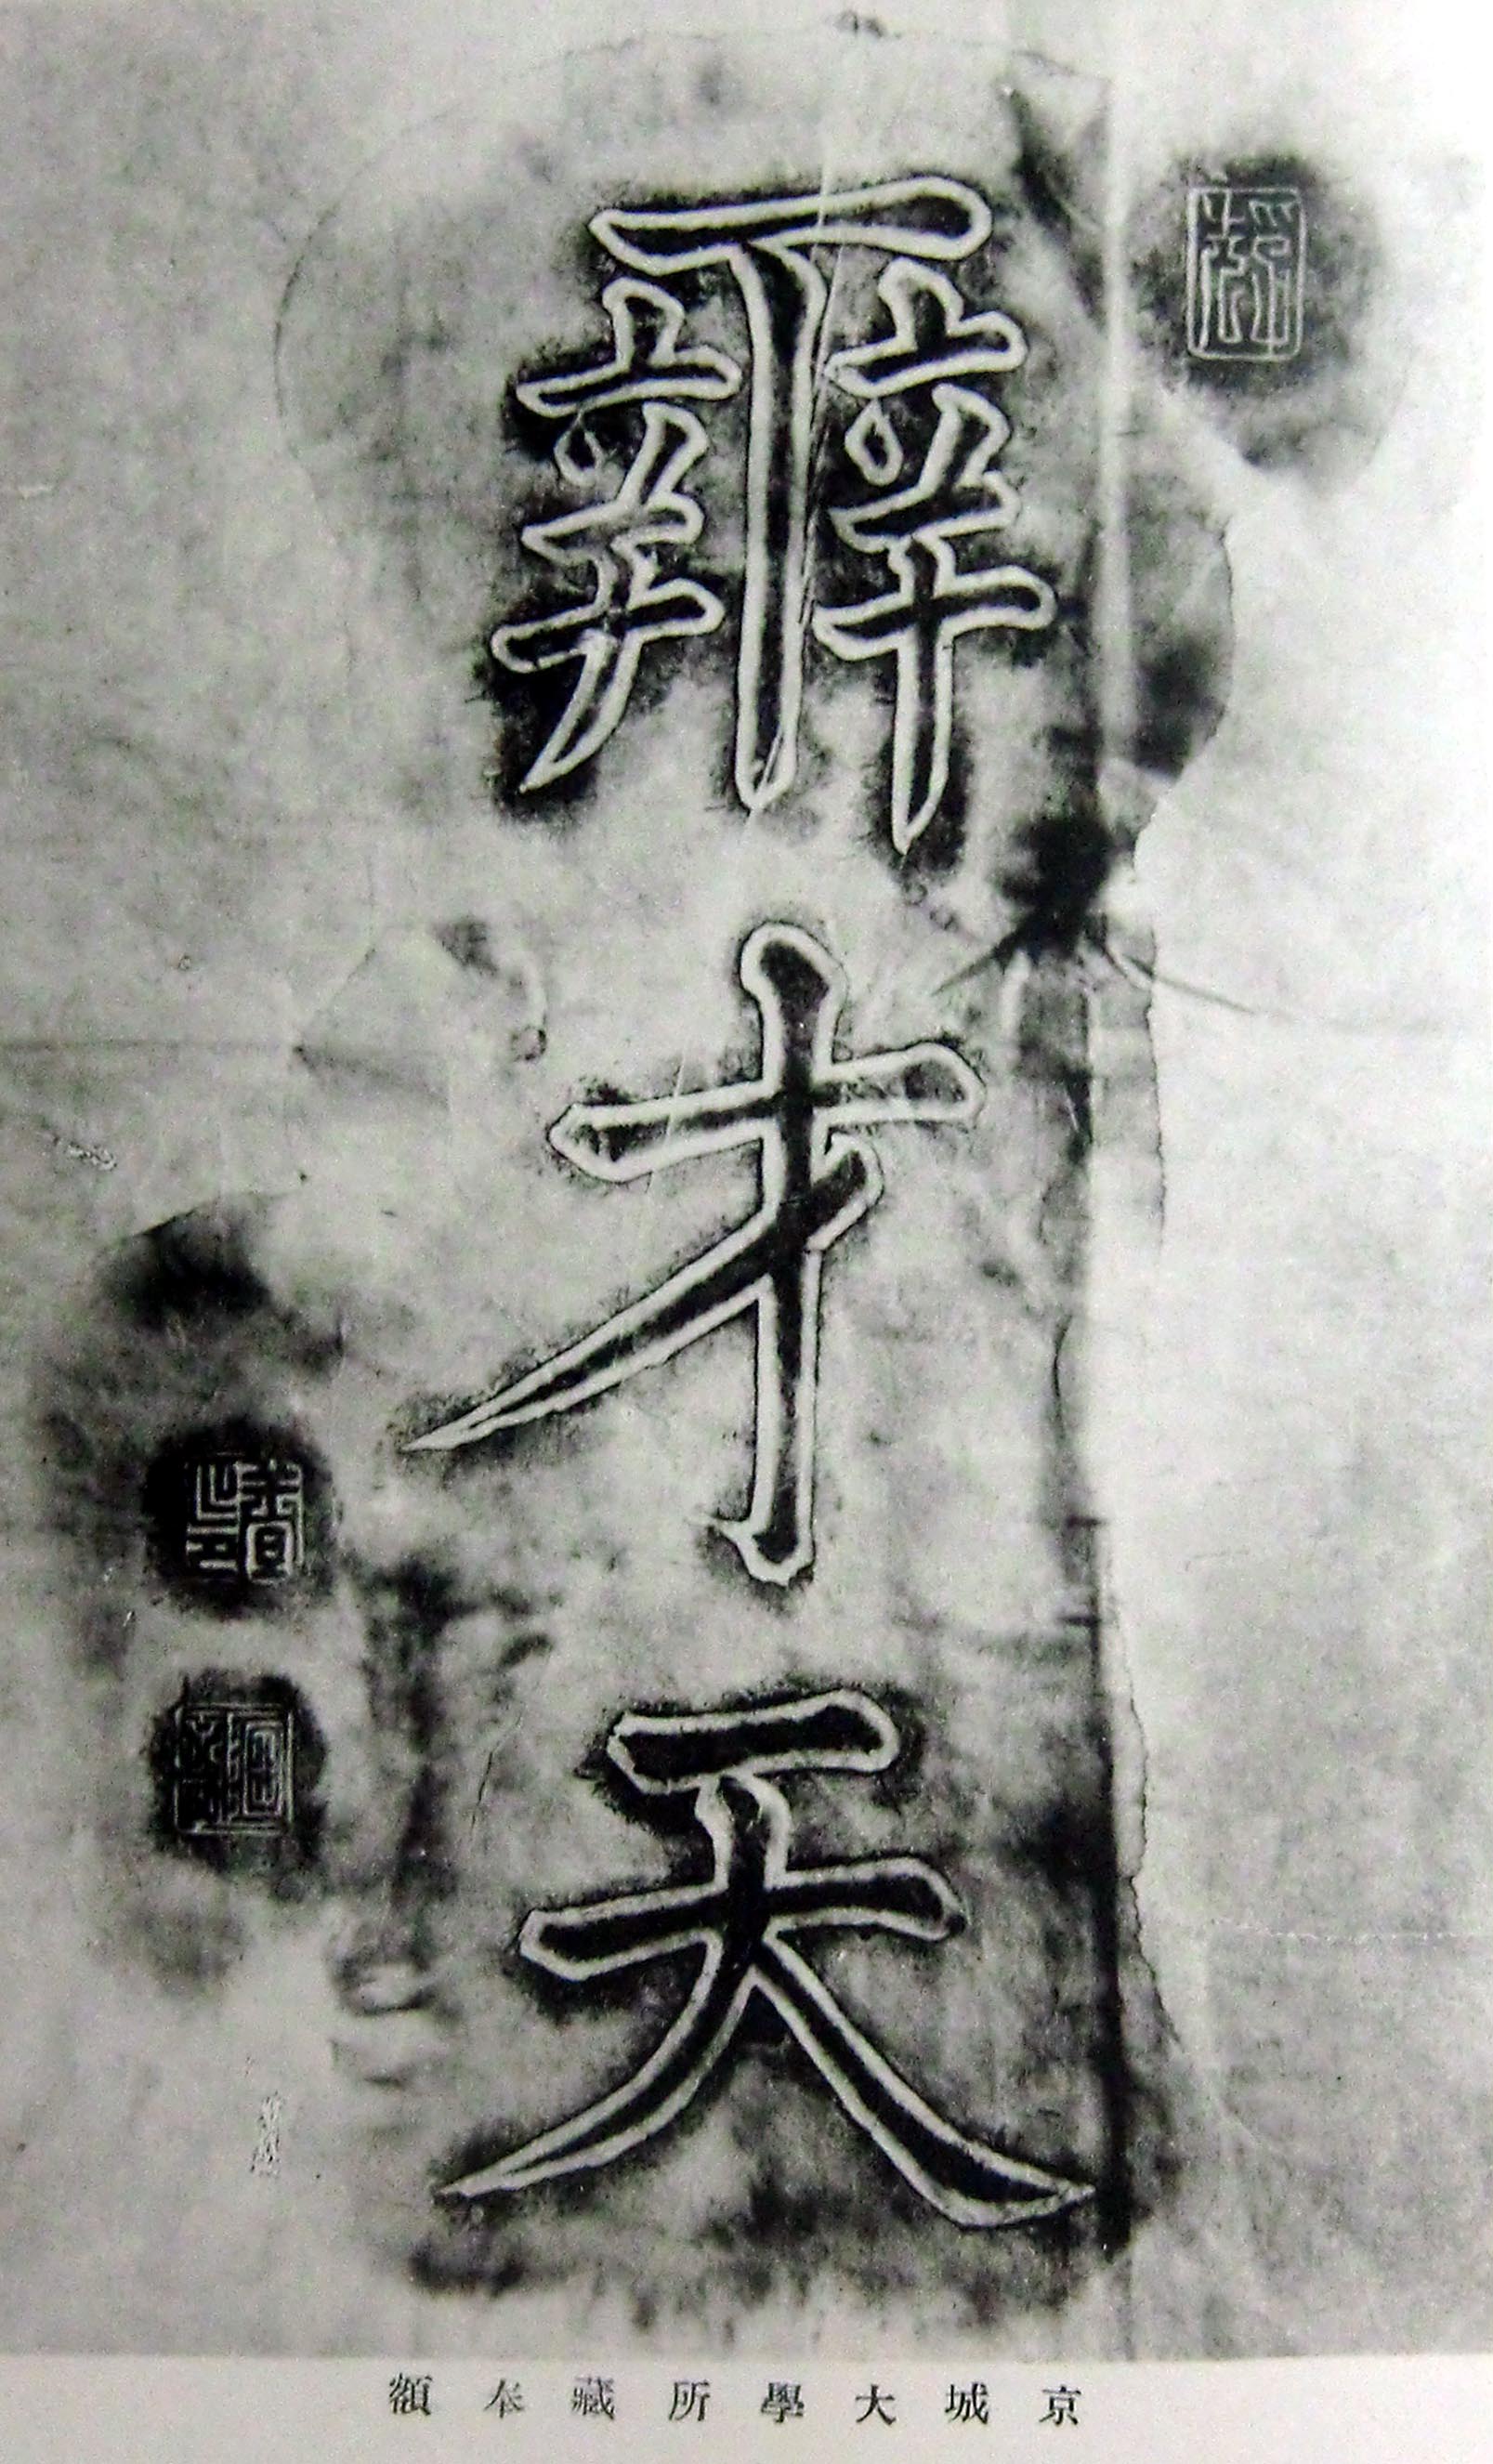 辨才天
京城大學所藏本額